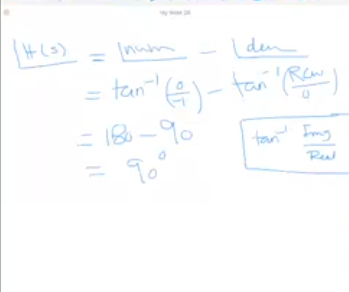 ∠H(s) = ∠num - ∠den
= tan⁻¹(0/-1) - tan⁻¹(RCw/0)
= 180 - 90
= 90°
tan⁻¹ Img/Real